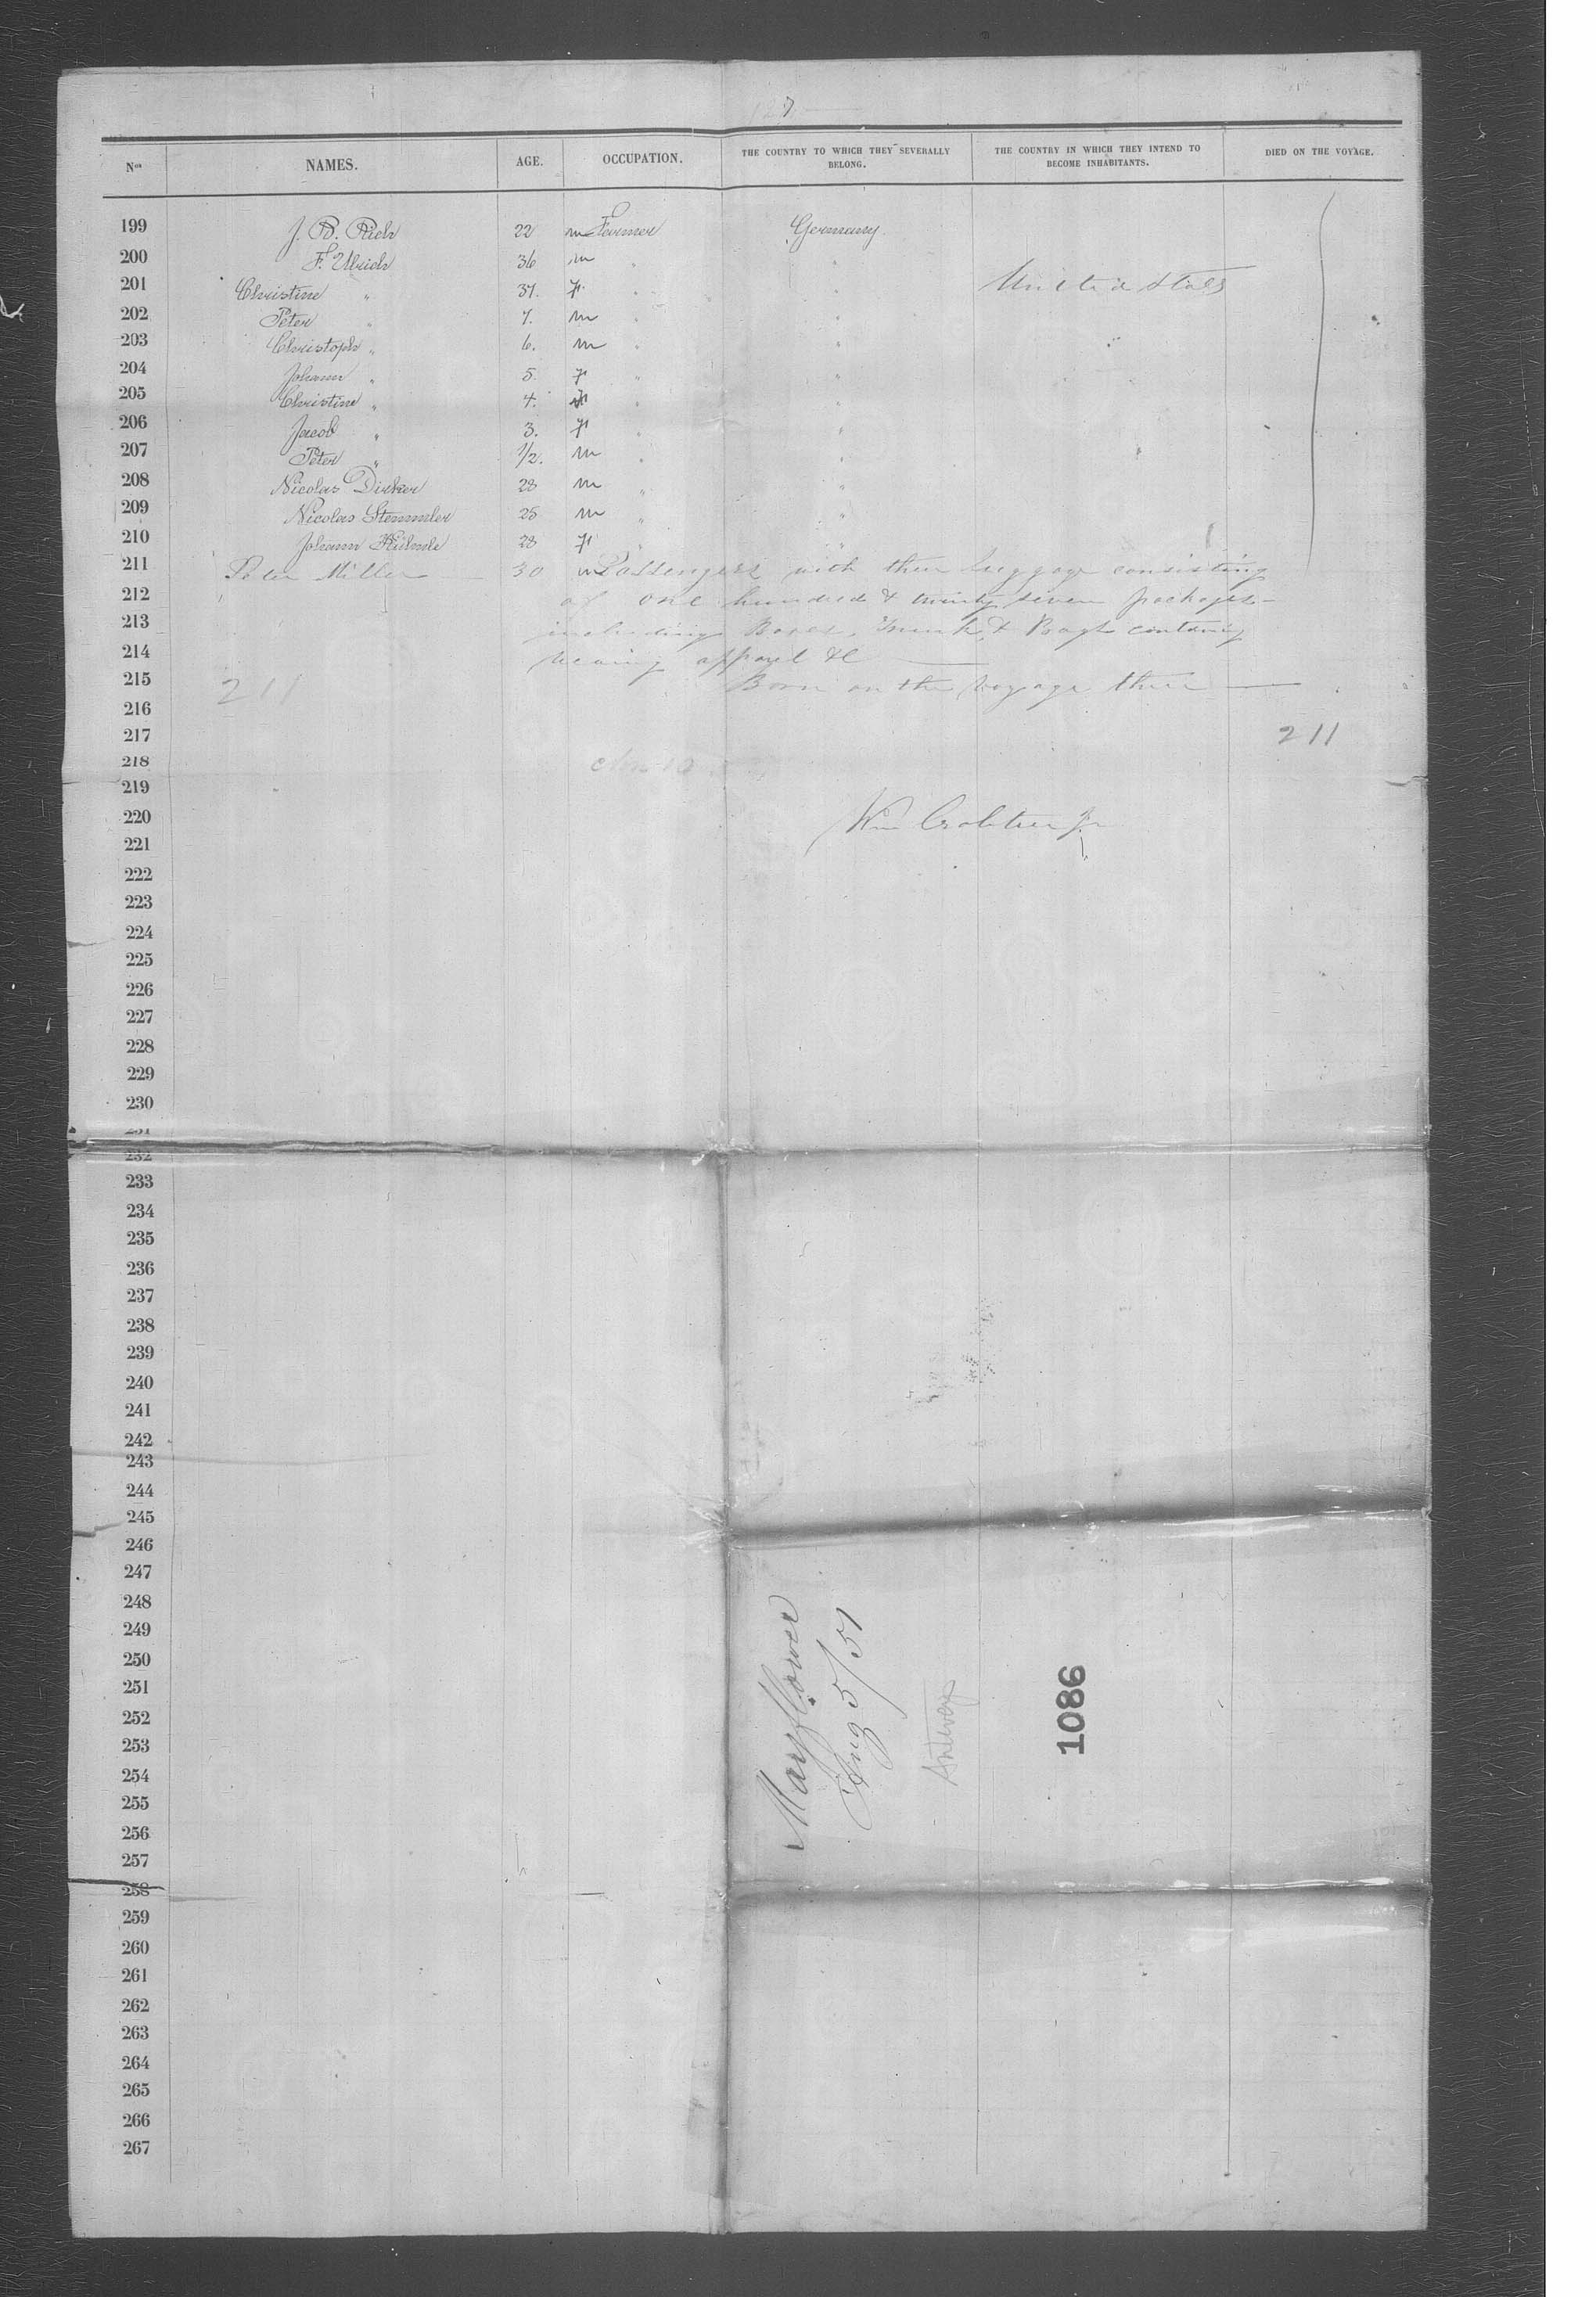 127
Nos NAMES. AGE. OCCUPATION. THE COUNTRY TO WHICH THEY SEVERALLY BELONG. THE COUNTRY IN WHICH THEY INTEND TO BECOME INHABITANTS. DIED ON THE VOYAGE.
199 J. B. Rich 22 m Farmer Germany
200 F. Ulrich 36 m " "
201 Christine " 37. f " " United States
202 Peter " 7. m " "
203 Christoph " 6. m " "
204 Johann " 5. f " "
205 Christine " 4. f " "
206 Jacob " 3. f " "
207 Peter " 1/2. m " "
208 Nicolas Dirker 28 m " "
209 Nicolas Stemmler 25 m " "
210 Johann 28 f " "
211 Peter Miller 30 m Passengers with their luggage consisting
212 of one hundred & twenty seven packages
213 including Boxes, Trunks & Bags containing
214 wearing apparel &c
215 211 Born on the voyage three
216
217 211
218
219
220 Wm Crabtree Jr
221
222
223
224
225
226
227
228
229
230
231
232
233
234
235
236
237
238
239
240
241
242
243
244
245
246
247
248
249
250
251
252
253
254
255
256
257
258
259
260
261
262
263
264
265
266
267
Mayflower
Aug 5/51
Antwerp
1086